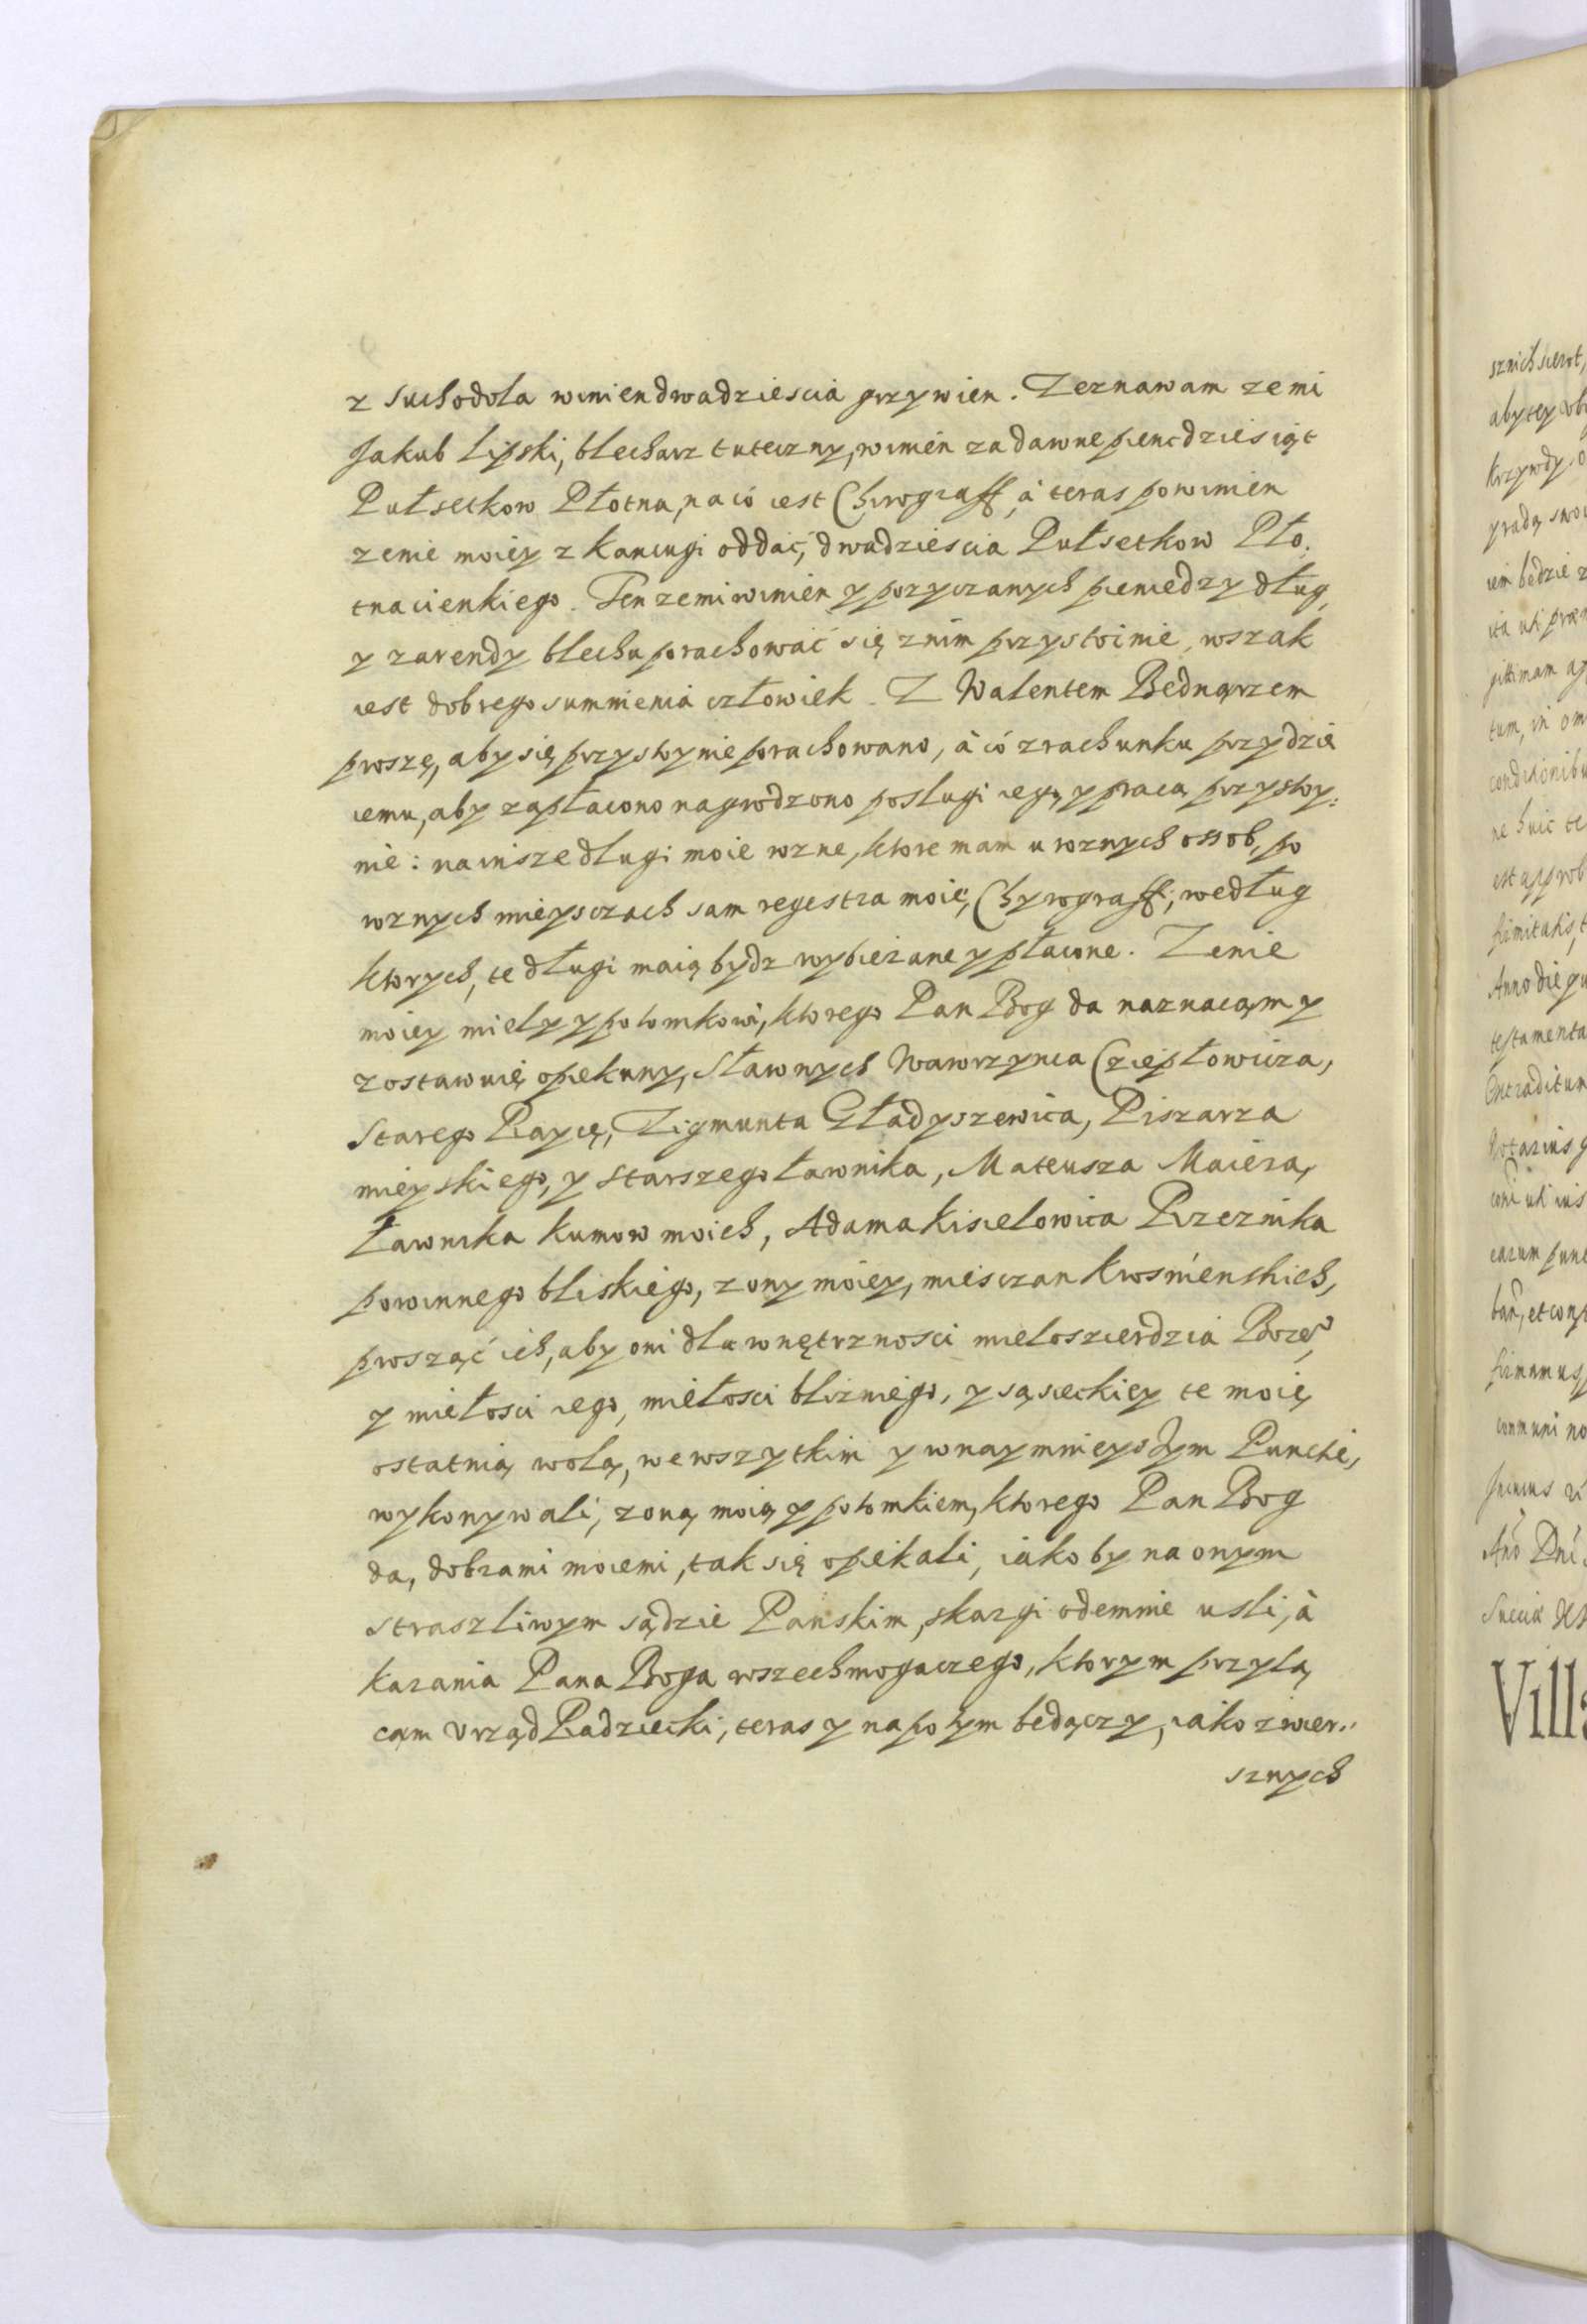 z Suchodola winien dwadziescia grzywien. Zeznawam ze mi
Jakub Lipski, blecharz tuteczny, winien zadawne piencdziesiąt
Pułsetkow Płotna, na co iest Chirograff, à teras powinien
zenie moiey z Kancugi oddać, dwadziescia Pułsetkow Pło,
tna cienkiego. Ten ze mi winien y pozyczanych pieniedzy dług,
y zarendy blechu porachować się znim przystoinie, wszak
iest dobrego sumnienia człowiek. Z Walentem Bednąrzem
proszę, aby się przystoynie porachowano, à co zrachunku przydzie
iemu, aby zapłacono nagrodzono posługi iego, y praca przystoy:
nie: na insze długi moie rozne, ktore mam u roznych ossob, po
roznych mieysczach sam regestra moie, Chyrograff, według
ktorych, te długi maią bydz wybieżane y płacone. Zenie
moiey miely y potomkowi, ktorego Pan Bog da naznacąm y
zostawuię opiekuny, Sławnych Wawrzynca Cziepłowicza,
Starego Raycę, Zigmunta Gładyszewica, Piszarza
mieyskiego, y starszego Ławnika, Mateusza Maiera,
Ławnika kumow moich, Adama Kisielowica Rzeznika
powinnego bliskiego, zony moiey, miesczan krosnienskich,
prosząć ich, aby oni dla wnętrznosci mieloszierdzia Bozeº,
y miełosci iego, miełosci blizniego, y sąsieckiey te moię
ostatnią wolą, wewszytkim y wnaymnieyszym Puncie,
wykonywali, zoną moią y potomkiem, ktorego Pan Bog
da, dobrami moiemi, tak się opiekali, iako by na onym
straszliwym sądzie Panskim, skargi odemnie usli, à
karania Pana Boga wszechmogaczego, ktorym przylą
cąm Vrząd Radziecki, teras y napotym bedączy, iako zwier..
sznych
sznich sierot,
krzywdy
iem bedzie
tum, in om
Anno die
testamenta
Notarius
Villa